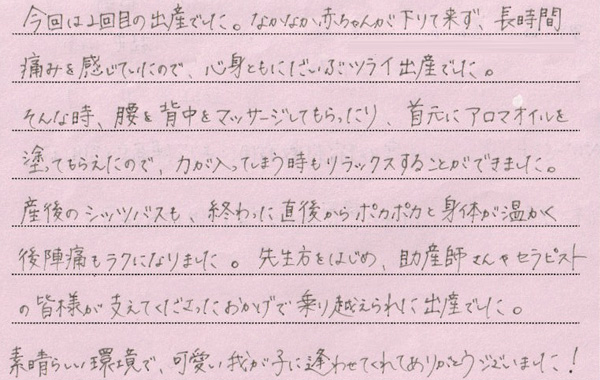 今回は2回目の出産でした。なかなか赤ちゃんが下りて来ず、長時間
痛みを感じていたので、心身ともにだいぶツライ出産でした。
そんな時、腰を背中をマッサージしてもらったり、首元にアロマオイルを
塗ってもらえたので、力が入ってしまう時もリラックスすることができました。
産後のシッツバスも、終わった直後からポカポカと身体が温かく
後陣痛もラクになりました。先生方をはじめ、助産師さんやセラピスト
の皆様が支えてくださったおかげで乗り越えられた出産でした。
素晴らしい環境で、可愛い我が子に逢わせてくれてありがとうございました！